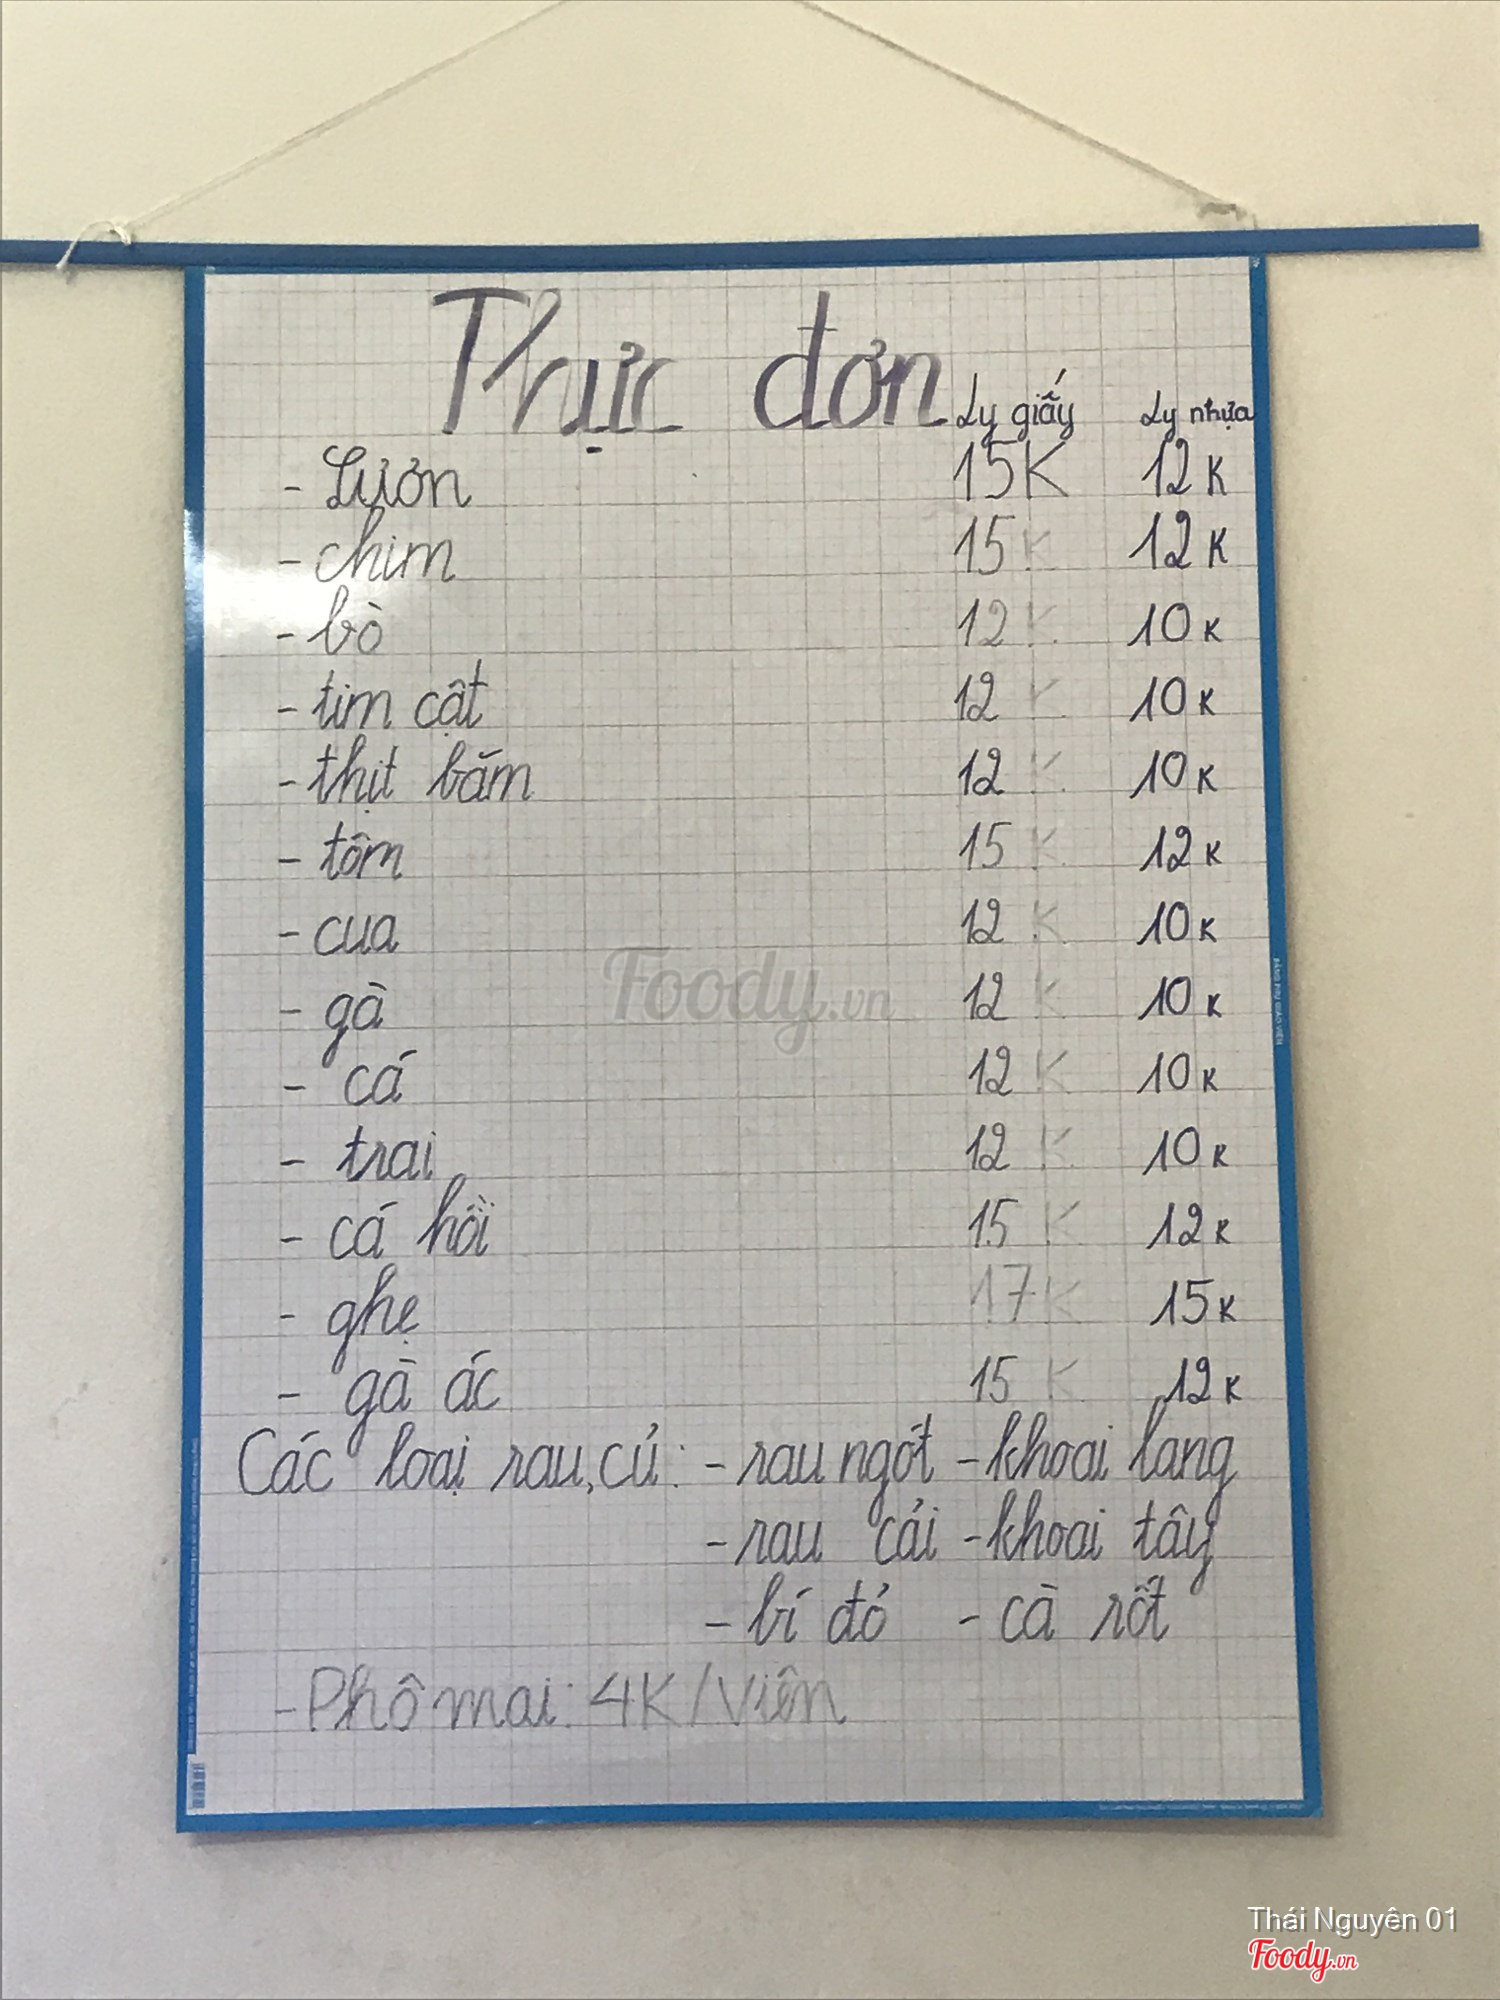 Thực đơn Ly giấy Ly nhựa
- Lươn 15K 12K
- chim 15K 12K
- bò 12K 10K
- tim cật 12K 10K
- thịt băm 12K 10K
- tôm 15K 12K
- cua 12K 10K
- gà 12K 10K
- cá 12K 10K
- trai 12K 10K
- cá hồi 15K 12K
- ghẹ 17K 15K
- gà ác 15K 12K
Các loại rau, củ: - rau ngót - khoai lang
- rau cải - khoai tây
- bí đỏ - cà rốt
- Phô mai: 4K/Viên
Foody.vn
Thái Nguyên 01
Foody.vn